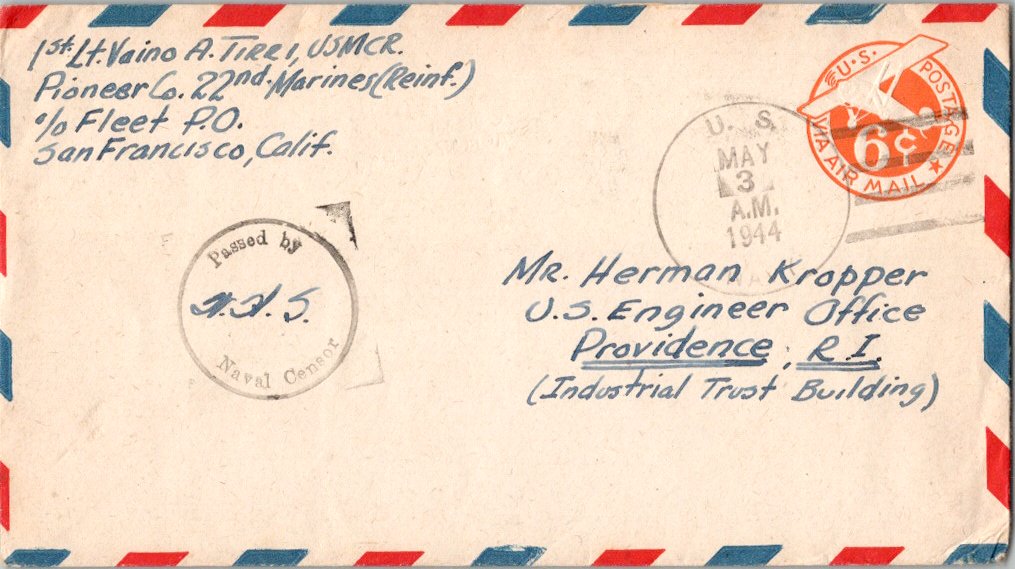 1st. Lt. Vaino A. TIRRI, USMCR.
Pioneer Co. 22nd. Marines (Reinf.)
c/o Fleet P.O.
San Francisco, Calif.
U.S. POSTAGE
6¢
VIA AIR MAIL
U. S.
MAY
3
A.M.
1944
NAVY
Passed by
Naval Censor
MR. Herman Kropper
U.S. Engineer Office
Providence, R.I.
(Industrial Trust Building)